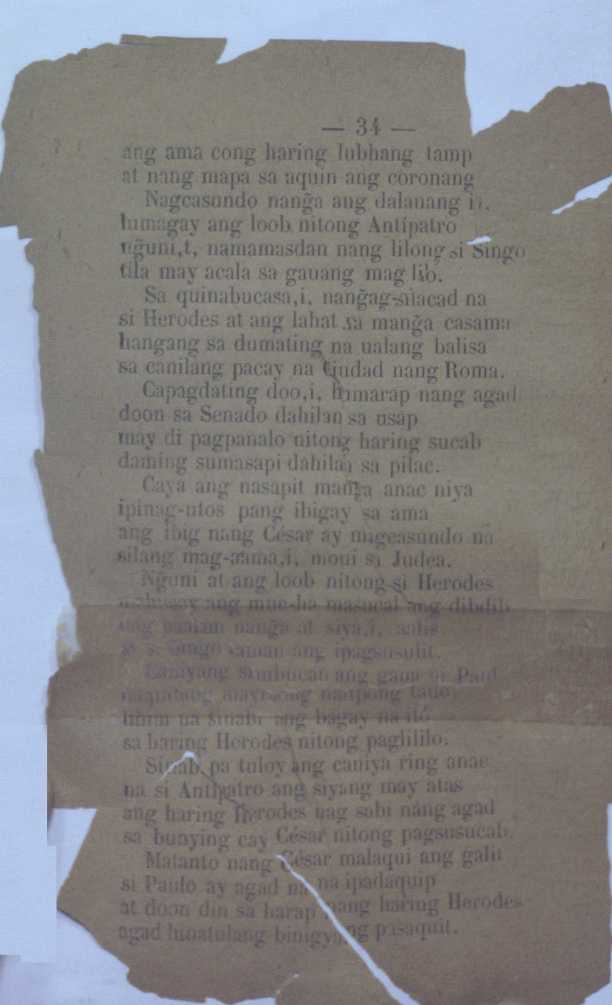 — 34 —
ang ama cong haring lubhang tamp
at nang mapa sa aquin ang coronang
Nagcasundo nang̃a ang dalauang
lumagay ang loob nitong Antípatro
ng̃uni,t, namamasdan nang lilong si Singo
tila may acala sa gauang mag lilo.
Sa quinabucasa,i, nang̃ag-siacad na
si Herodes at ang lahat sa mang̃a casama
hangang sa dumating na ualang balisa
sa canilang pacay na Ciudad nang Roma.
Capagdating doo,i, humarap nang agad
doon sa Senado dahilan sa usap
may di pagpanalo nitong haring sucab
daming sumasapi dahilan sa pilac.
Caya ang nasapit mang̃a anac niya
ipinag-utos pang ibigay sa ama
ang ibig nang César ay magcasundo na
silang mag-aama,i, moui sa Judea.
Ng̃uni at ang loob nitong si Herodes
ang masucal ang dibdib
nang̃a at siya,i,
ang ipagsusulit.
ang gaua ni Paul
na sinabi ang bagay na itó
sa haring Herodes nitong paglililo.
Sinab pa tuloy ang caniya ring anac
na si Antípatro ang siyang may atas
ang haring Herodes nag sabi nang agad
sa bunying cay César nitong pagsusucab.
Matanto nang César malaqui ang galit
si Paulo ay agad na na ipadaquip
at doon din sa harap nang haring Herodes
agad hinatulang binigyang pasaquit.